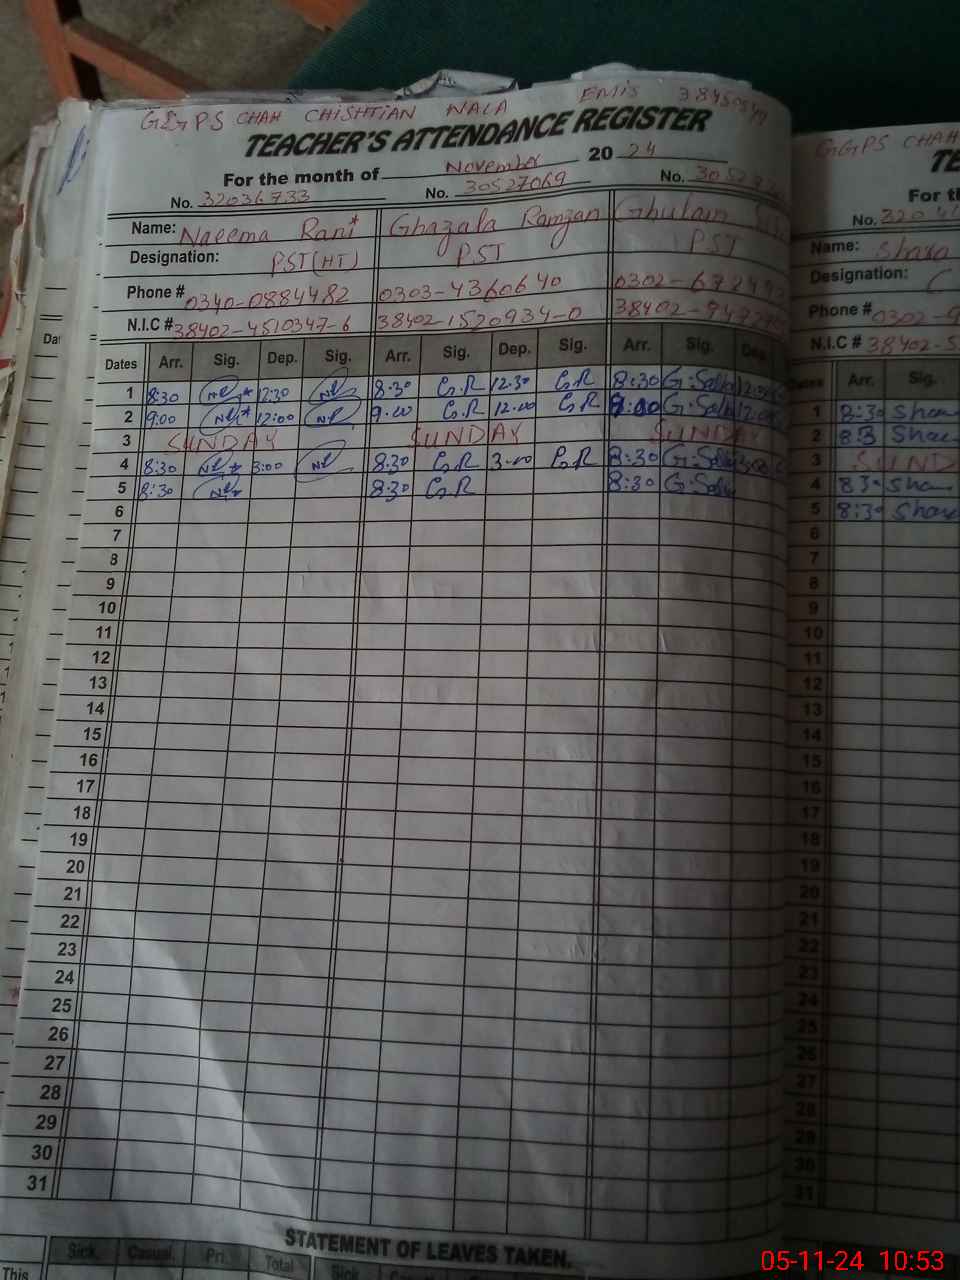 GGPS CHAH CHISHTIAN WALA EMIS
TEACHER'S ATTENDANCE REGISTER
For the month of November 20 24
No. 32036733 No. 30527069 No.
Name: Naeema Rani* Ghazala Ramzan Ghulam
Designation: PST(HT) PST PST
Phone # 0340-0884482 0303-4360640
N.I.C # 38402-4510347-6 38402-1520934-0
Dates Arr. Sig. Dep. Sig. Arr. Sig. Dep. Sig. Arr. Sig.
1 8:30 12:30 8:30 G.R 12.30 G.R 8:30
2 9:00 12:00 9.00 G.R 12.00 G.R 9:00
3 SUNDAY SUNDAY SUNDAY
4 8:30 3:00 8:30 G.R 3.00 G.R 8:30
5 8:30 8:30 G.R 8:30
6
7
8
9
10
11
12
13
14
15
16
17
18
19
20
21
22
23
24
25
26
27
28
29
30
31
STATEMENT OF LEAVES TAKEN.
Sick. Casual. Pri. Total Sick.
This
GGPS CHAH
TE
For t
No.
Name:
Designation:
Phone #
N.I.C #
Dates Arr. Sig.
1 8:30
2
3 SUND
4
5 8:30
6
7
8
9
10
11
12
13
14
15
16
17
18
19
20
21
22
23
24
25
26
27
28
29
30
31
05-11-24 10:53